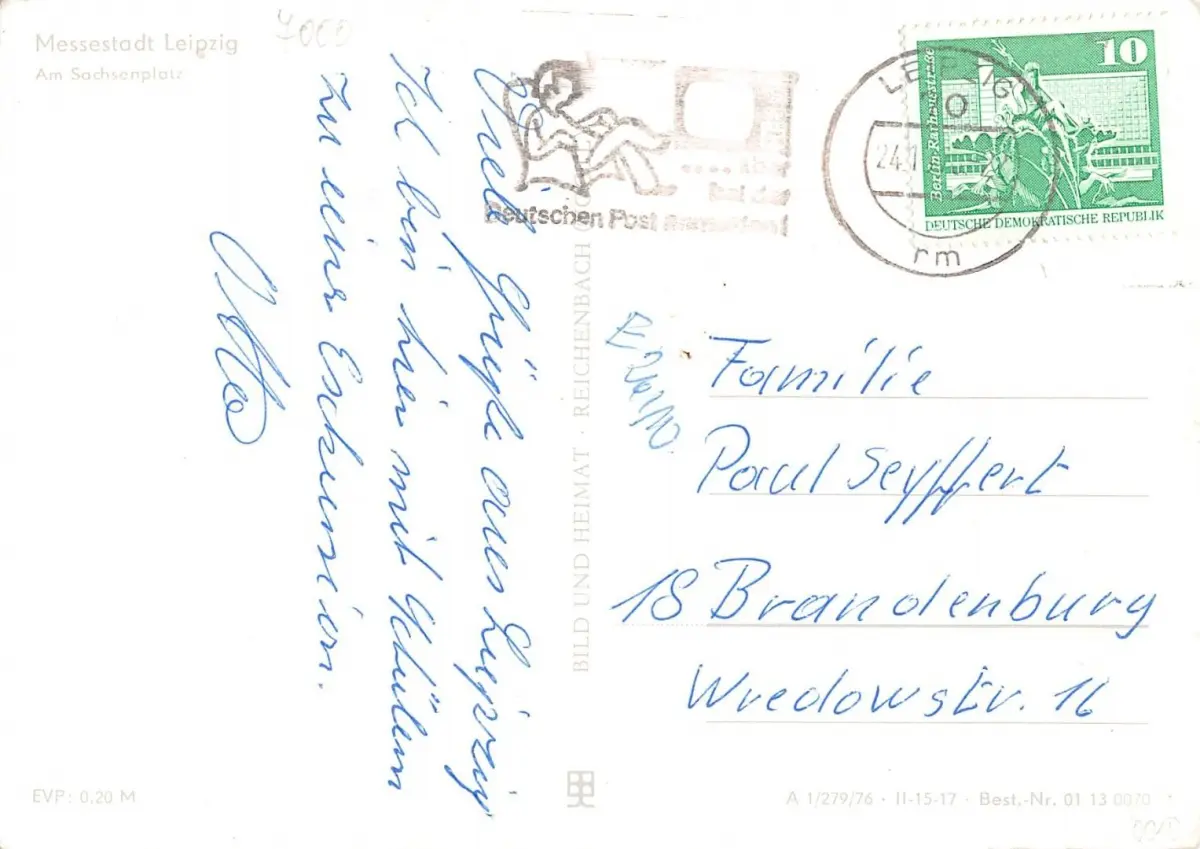 Messestadt Leipzig
Am Sachsenplatz
7000
Viele Grüße aus Leipzig
Ich bin hier mit Schülern
zu einer Exkursion.
Otto
.... aber
bei der
Deutschen Post
LEIPZIG
10
24.1
rm
10
Berlin-Rathausstraße
DEUTSCHE DEMOKRATISCHE REPUBLIK
BILD UND HEIMAT · REICHENBACH
Familie
Paul Seyffert
18 Brandenburg
Wredowstr. 16
EVP: 0,20 M
A 1/279/76 · II-15-17 · Best.-Nr. 01 13 0070